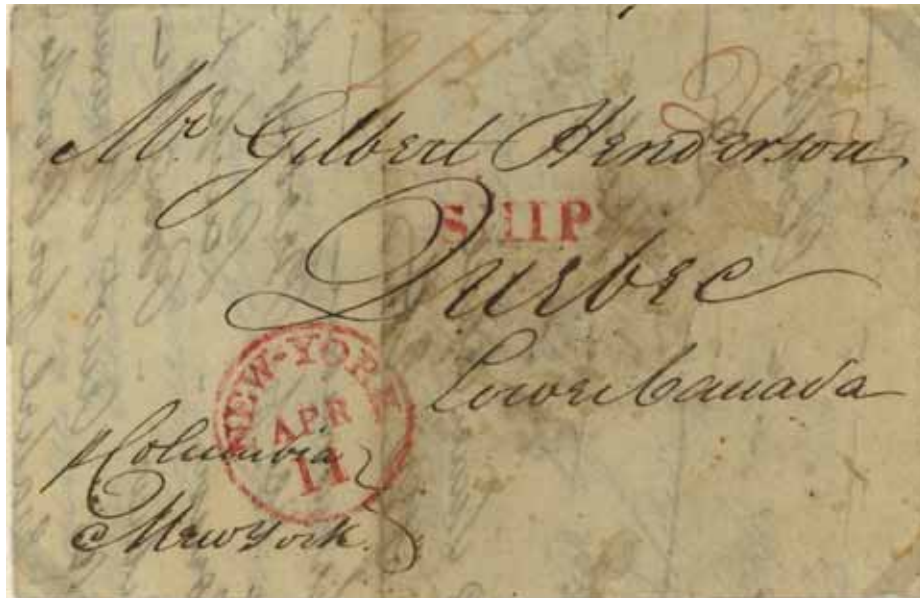 Mr. Gilbert Henderson
SHIP
Quebec
Lower Canada
NEW-YORK
APR
11
p Columbia
New York.